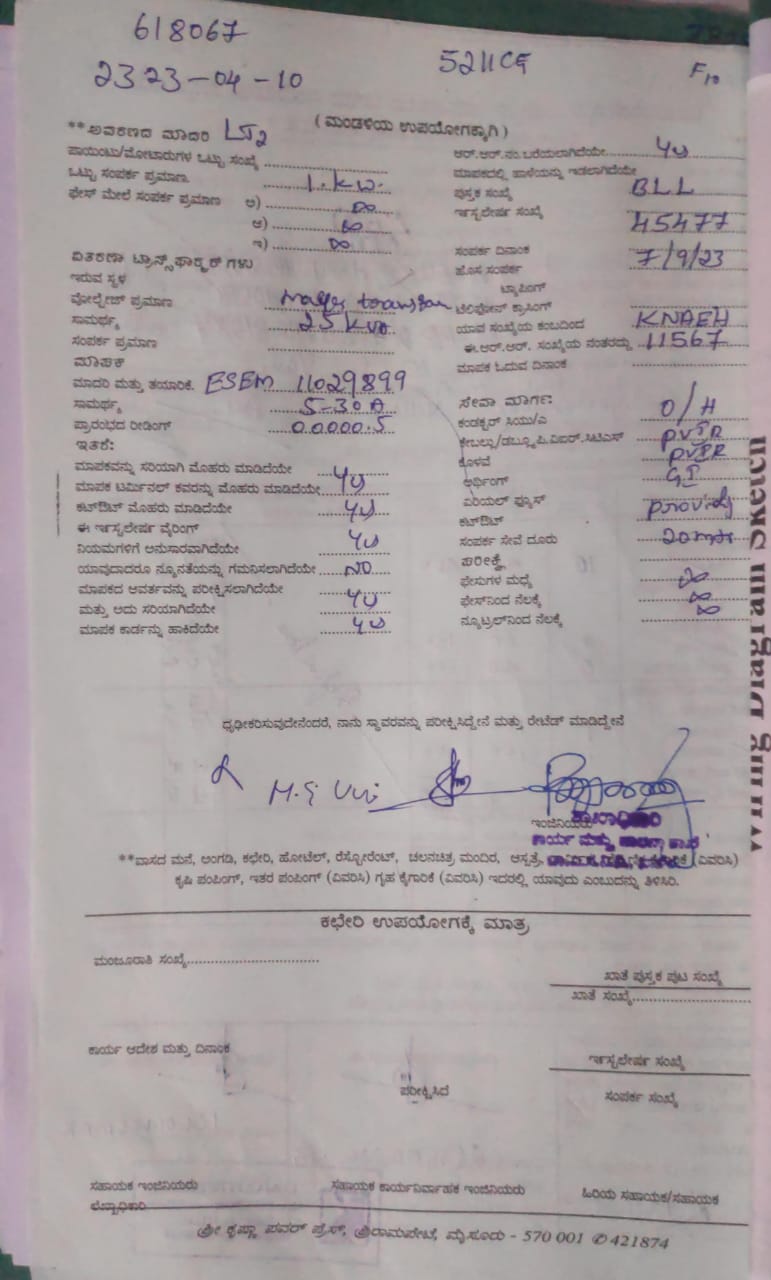 618067
5211CG
2323-04-10
F10
(ಮಂಡಳಿಯ ಉಪಯೋಗಕ್ಕಾಗಿ)
**ಅವಕರಣದ ಮಾದರಿ LT2
ಪಾಯಿಂಟು/ಮೋಟಾರುಗಳ ಒಟ್ಟು ಸಂಖ್ಯೆ
ಒಟ್ಟು ಸಂಪರ್ಕ ಪ್ರಮಾಣ. 1.kw.
ಫೇಸ್ ಮೇಲೆ ಸಂಪರ್ಕ ಪ್ರಮಾಣ ಅ) ∞
ಆ) ∞
ಇ) ∞
ವಿತರಣಾ ಟ್ರಾನ್ಸ್‌ಫಾರ್ಮರ್ ಗಳು
ಇರುವ ಸ್ಥಳ
ವೋಲ್ಟೇಜ್ ಪ್ರಮಾಣ
ಸಾಮರ್ಥ್ಯ 25 kva
ಸಂಪರ್ಕ ಪ್ರಮಾಣ
ಮಾಪಕ
ಮಾದರಿ ಮತ್ತು ತಯಾರಿಕೆ. ESEM 11029899
ಸಾಮರ್ಥ್ಯ 5-30 A
ಪ್ರಾರಂಭದ ರೀಡಿಂಗ್ 00000.5
ಇತರೆ:
ಮಾಪಕವನ್ನು ಸರಿಯಾಗಿ ಮೊಹರು ಮಾಡಿದೆಯೇ
ಮಾಪಕ ಟರ್ಮಿನಲ್ ಕವರನ್ನು ಮೊಹರು ಮಾಡಿದೆಯೇ
ಕಟ್‌ಔಟ್ ಮೊಹರು ಮಾಡಿದೆಯೇ
ಈ ಇನ್ಸ್ಟಲೇಷನ್ ವೈರಿಂಗ್
ನಿಯಮಗಳಿಗೆ ಅನುಸಾರವಾಗಿದೆಯೇ
ಯಾವುದಾದರೂ ನ್ಯೂನತೆಯನ್ನು ಗಮನಿಸಲಾಗಿದೆಯೇ NO
ಮಾಪಕದ ಆವರ್ತವನ್ನು ಪರೀಕ್ಷಿಸಲಾಗಿದೆಯೇ
ಮತ್ತು ಅದು ಸರಿಯಾಗಿದೆಯೇ
ಮಾಪಕ ಕಾರ್ಡನ್ನು ಹಾಕಿದೆಯೇ
ಆರ್.ಆರ್.ನಂ.ಬರೆಯಲಾಗಿದೆಯೇ
ಮಾಪಕದಲ್ಲಿ ಹಾಳೆಯನ್ನು ಇಡಲಾಗಿದೆಯೇ
ಪುಸ್ತಕ ಸಂಖ್ಯೆ BLL
ಇನ್ಸ್ಟಲೇಷನ್ ಸಂಖ್ಯೆ 45477
ಸಂಪರ್ಕ ದಿನಾಂಕ 7/9/23
ಹೊಸ ಸಂಪರ್ಕ
ಟ್ಯಾಪಿಂಗ್
ಟೆಲಿಫೋನ್ ಕ್ರಾಸಿಂಗ್
ಯಾವ ಸಂಖ್ಯೆಯ ಕಂಬದಿಂದ KNAEH
ಈ.ಆರ್.ಆರ್. ಸಂಖ್ಯೆಯ ನಂತರದ್ದು 11567
ಮಾಪಕ ಓದುವ ದಿನಾಂಕ
ಸೇವಾ ಮಾರ್ಗ:
ಕಂಡಕ್ಟರ್ ಸಿಯು/ಎ O/H
ಕೇಬಲ್ಲು/ಡಬ್ಲ್ಯೂ.ಪಿ.ಎಐಆರ್.ಸಿಟಿಎಸ್
ಕೊಳವೆ
ಅರ್ಥಿಂಗ್ GI
ಏರಿಯಲ್ ಫ್ಯೂಸ್
ಕಟ್‌ಔಟ್
ಸಂಪರ್ಕ ಸೇವೆ ದೂರು
ಪರೀಕ್ಷೆ
ಫೇಸುಗಳ ಮಧ್ಯೆ ∞
ಫೇಸ್‌ನಿಂದ ನೆಲಕ್ಕೆ ∞
ನ್ಯೂಟ್ರಲ್‌ನಿಂದ ನೆಲಕ್ಕೆ ∞
Wiring Diagram Sketch
ಧೃಢೀಕರಿಸುವುದೇನೆಂದರೆ, ನಾನು ಸ್ಥಾವರವನ್ನು ಪರೀಕ್ಷಿಸಿದ್ದೇನೆ ಮತ್ತು ರೇಟೆಡ್ ಮಾಡಿದ್ದೇನೆ
ಇಂಜಿನಿಯರು
**ವಾಸದ ಮನೆ, ಅಂಗಡಿ, ಕಛೇರಿ, ಹೋಟೆಲ್, ರೆಸ್ಟೋರೆಂಟ್, ಚಲನಚಿತ್ರ ಮಂದಿರ, ಆಸ್ಪತ್ರೆ, (ವಿವರಿಸಿ)
ಕೃಷಿ ಪಂಪಿಂಗ್, ಇತರ ಪಂಪಿಂಗ್ (ವಿವರಿಸಿ) ಗೃಹ ಕೈಗಾರಿಕೆ (ವಿವರಿಸಿ) ಇದರಲ್ಲಿ ಯಾವುದು ಎಂಬುದನ್ನು ತಿಳಿಸಿರಿ.
ಕಛೇರಿ ಉಪಯೋಗಕ್ಕೆ ಮಾತ್ರ
ಮಂಜೂರಾತಿ ಸಂಖ್ಯೆ
ಖಾತೆ ಪುಸ್ತಕ ಪುಟ ಸಂಖ್ಯೆ
ಖಾತೆ ಸಂಖ್ಯೆ
ಕಾರ್ಯ ಆದೇಶ ಮತ್ತು ದಿನಾಂಕ
ಇನ್ಸ್ಟಲೇಷನ್ ಸಂಖ್ಯೆ
ಪರೀಕ್ಷಿಸಿದ
ಸಂಪರ್ಕ ಸಂಖ್ಯೆ
ಸಹಾಯಕ ಇಂಜಿನಿಯರು
ಸಹಾಯಕ ಕಾರ್ಯನಿರ್ವಾಹಕ ಇಂಜಿನಿಯರು
ಹಿರಿಯ ಸಹಾಯಕ/ಸಹಾಯಕ
ಲೆಖ್ಖಾಧಿಕಾರಿ
ಶ್ರೀ ಕೃಷ್ಣಾ ಪವರ್ ಪ್ರೆಸ್, ಶ್ರೀರಾಮಪೇಟೆ, ಮೈಸೂರು - 570 001 ✆ 421874